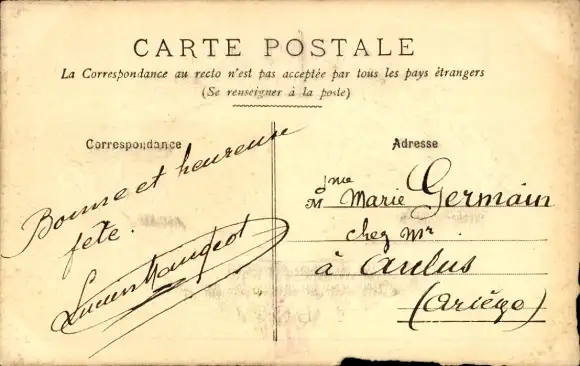 CARTE POSTALE
La Correspondance au recto n'est pas acceptée par tous les pays étrangers
(Se renseigner à la poste)
Correspondance
Bonne et heureuse
fête.
Lucien Mangeot
Adresse
Mme Marie Germain
chez Mr.
à Aulus
(Ariége)